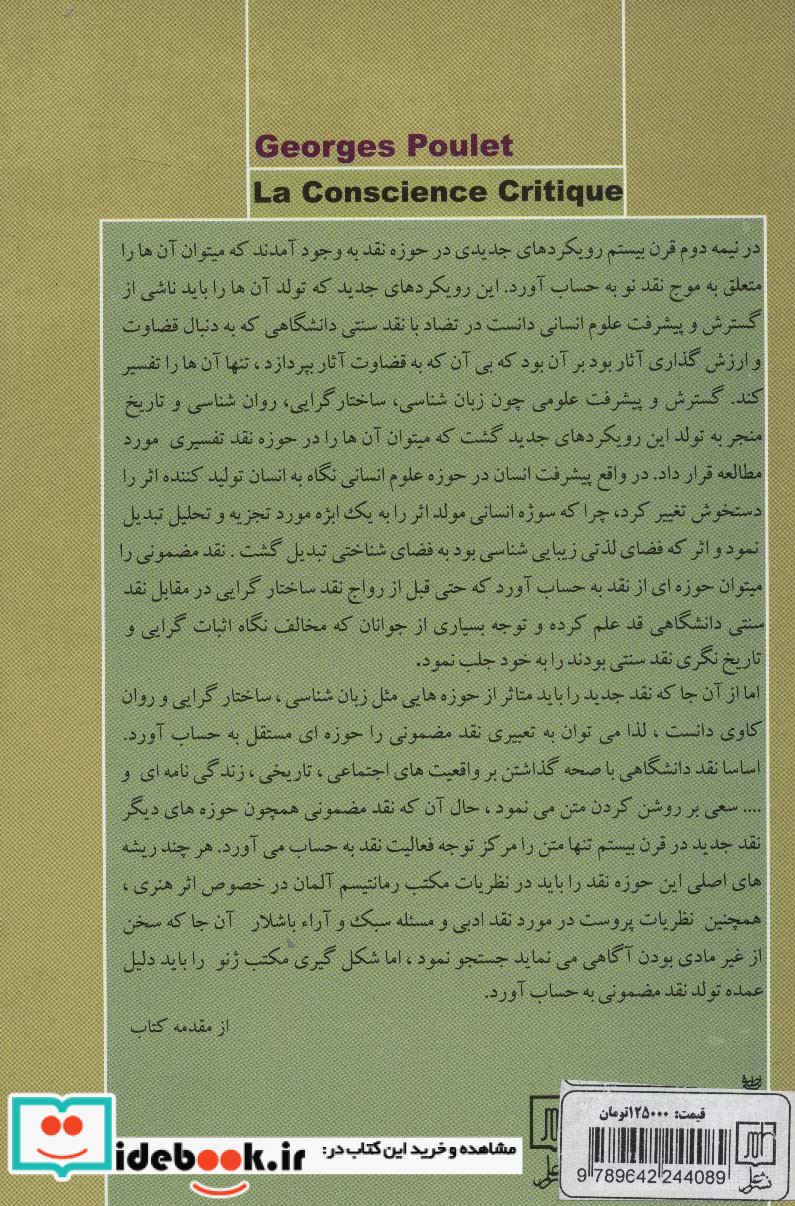 Georges Poulet
La Conscience Critique
در نیمه دوم قرن بیستم رویکردهای جدیدی در حوزه نقد به وجود آمدند که میتوان آن ها را
متعلق به موج نقد نو به حساب آورد. این رویکردهای جدید که تولد آن ها را باید ناشی از
گسترش و پیشرفت علوم انسانی دانست در تضاد با نقد سنتی دانشگاهی که به دنبال قضاوت
و ارزش گذاری آثار بود بر آن بود که بی آن که به قضاوت آثار بپردازد ، تنها آن ها را تفسیر
کند. گسترش و پیشرفت علومی چون زبان شناسی، ساختارگرایی، روان شناسی و تاریخ
منجر به تولد این رویکردهای جدید گشت که میتوان آن ها را در حوزه نقد تفسیری مورد
مطالعه قرار داد. در واقع پیشرفت انسان در حوزه علوم انسانی نگاه به انسان تولید کننده اثر را
دستخوش تغییر کرد، چرا که سوژه انسانی مولد اثر را به یک ابژه مورد تجزیه و تحلیل تبدیل
نمود و اثر که فضای لذتی زیبایی شناسی بود به فضای شناختی تبدیل گشت . نقد مضمونی را
میتوان حوزه ای از نقد به حساب آورد که حتی قبل از رواج نقد ساختار گرایی در مقابل نقد
سنتی دانشگاهی قد علم کرده و توجه بسیاری از جوانان که مخالف نگاه اثبات گرایی و
تاریخ نگری نقد سنتی بودند را به خود جلب نمود.
اما از آن جا که نقد جدید را باید متاثر از حوزه هایی مثل زبان شناسی ، ساختار گرایی و روان
کاوی دانست ، لذا می توان به تعبیری نقد مضمونی را حوزه ای مستقل به حساب آورد.
اساسا نقد دانشگاهی با صحه گذاشتن بر واقعیت های اجتماعی ، تاریخی ، زندگی نامه ای و
.... سعی بر روشن کردن متن می نمود ، حال آن که نقد مضمونی همچون حوزه های دیگر
نقد جدید در قرن بیستم تنها متن را مرکز توجه فعالیت نقد به حساب می آورد. هر چند ریشه
های اصلی این حوزه نقد را باید در نظریات مکتب رمانتیسم آلمان در خصوص اثر هنری ،
همچنین نظریات پروست در مورد نقد ادبی و مسئله سبک و آراء باشلار آن جا که سخن
از غیر مادی بودن آگاهی می نماید جستجو نمود ، اما شکل گیری مکتب ژنو را باید دلیل
عمده تولد نقد مضمونی به حساب آورد.
از مقدمه کتاب
قیمت: ۱۲۵۰۰۰تومان
9 789642 244089
نشر علم
idebook.ir
مشاهده و خرید این کتاب در: